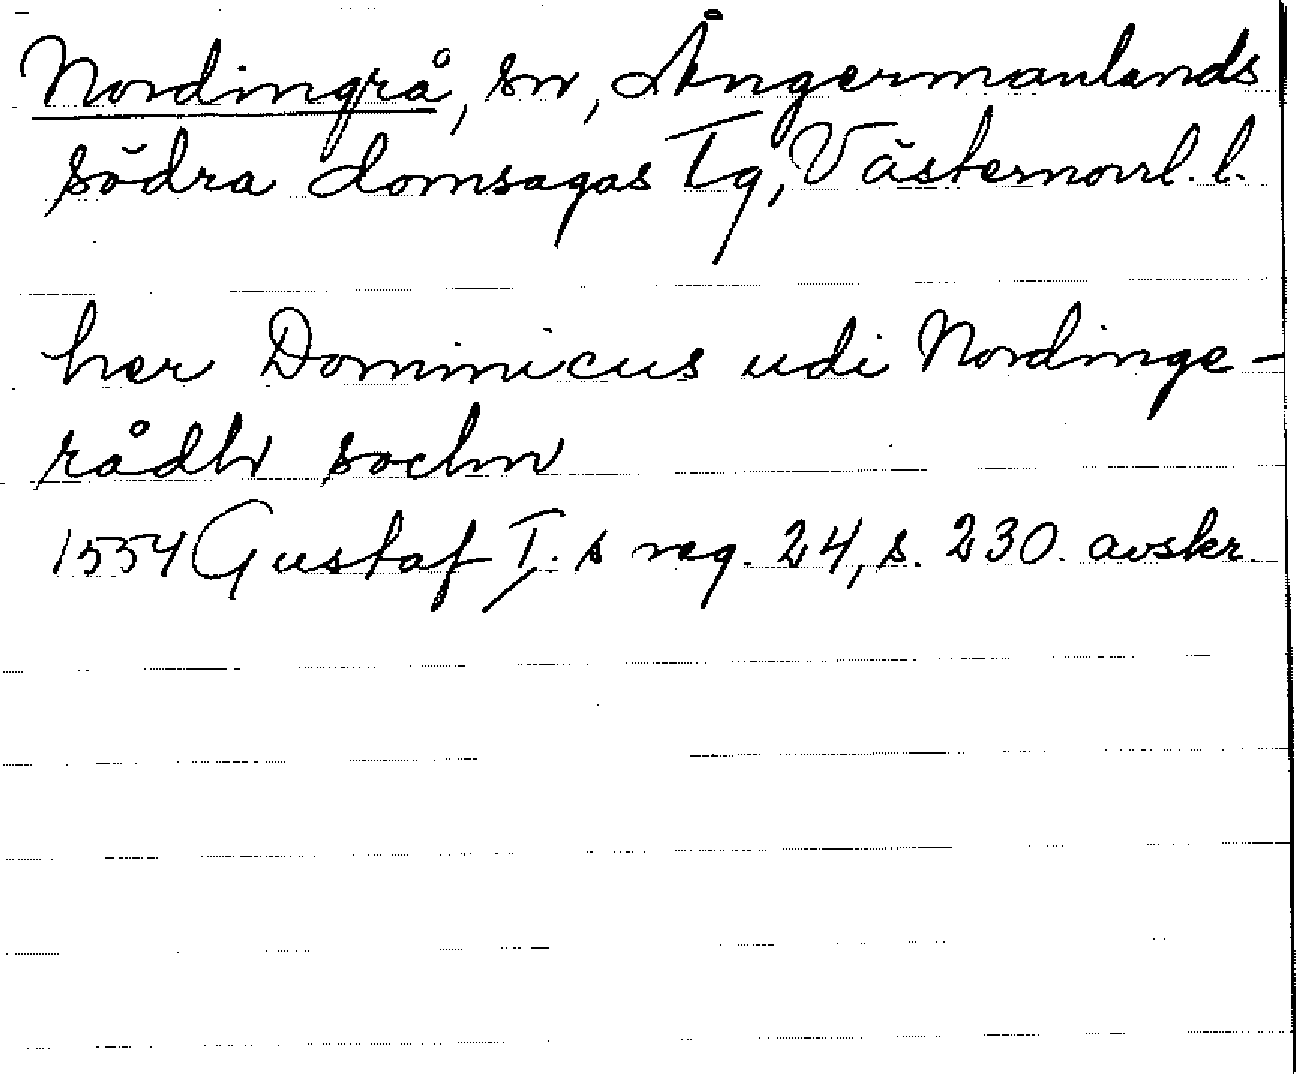 Nordingrå, sn, Ångermanlands
södra domsagas Tg, Västernorrl. l.
her Dominicus udi Nordinge-
rådh sochn
1554 Gustaf I:s reg. 24, s. 230. avskr.